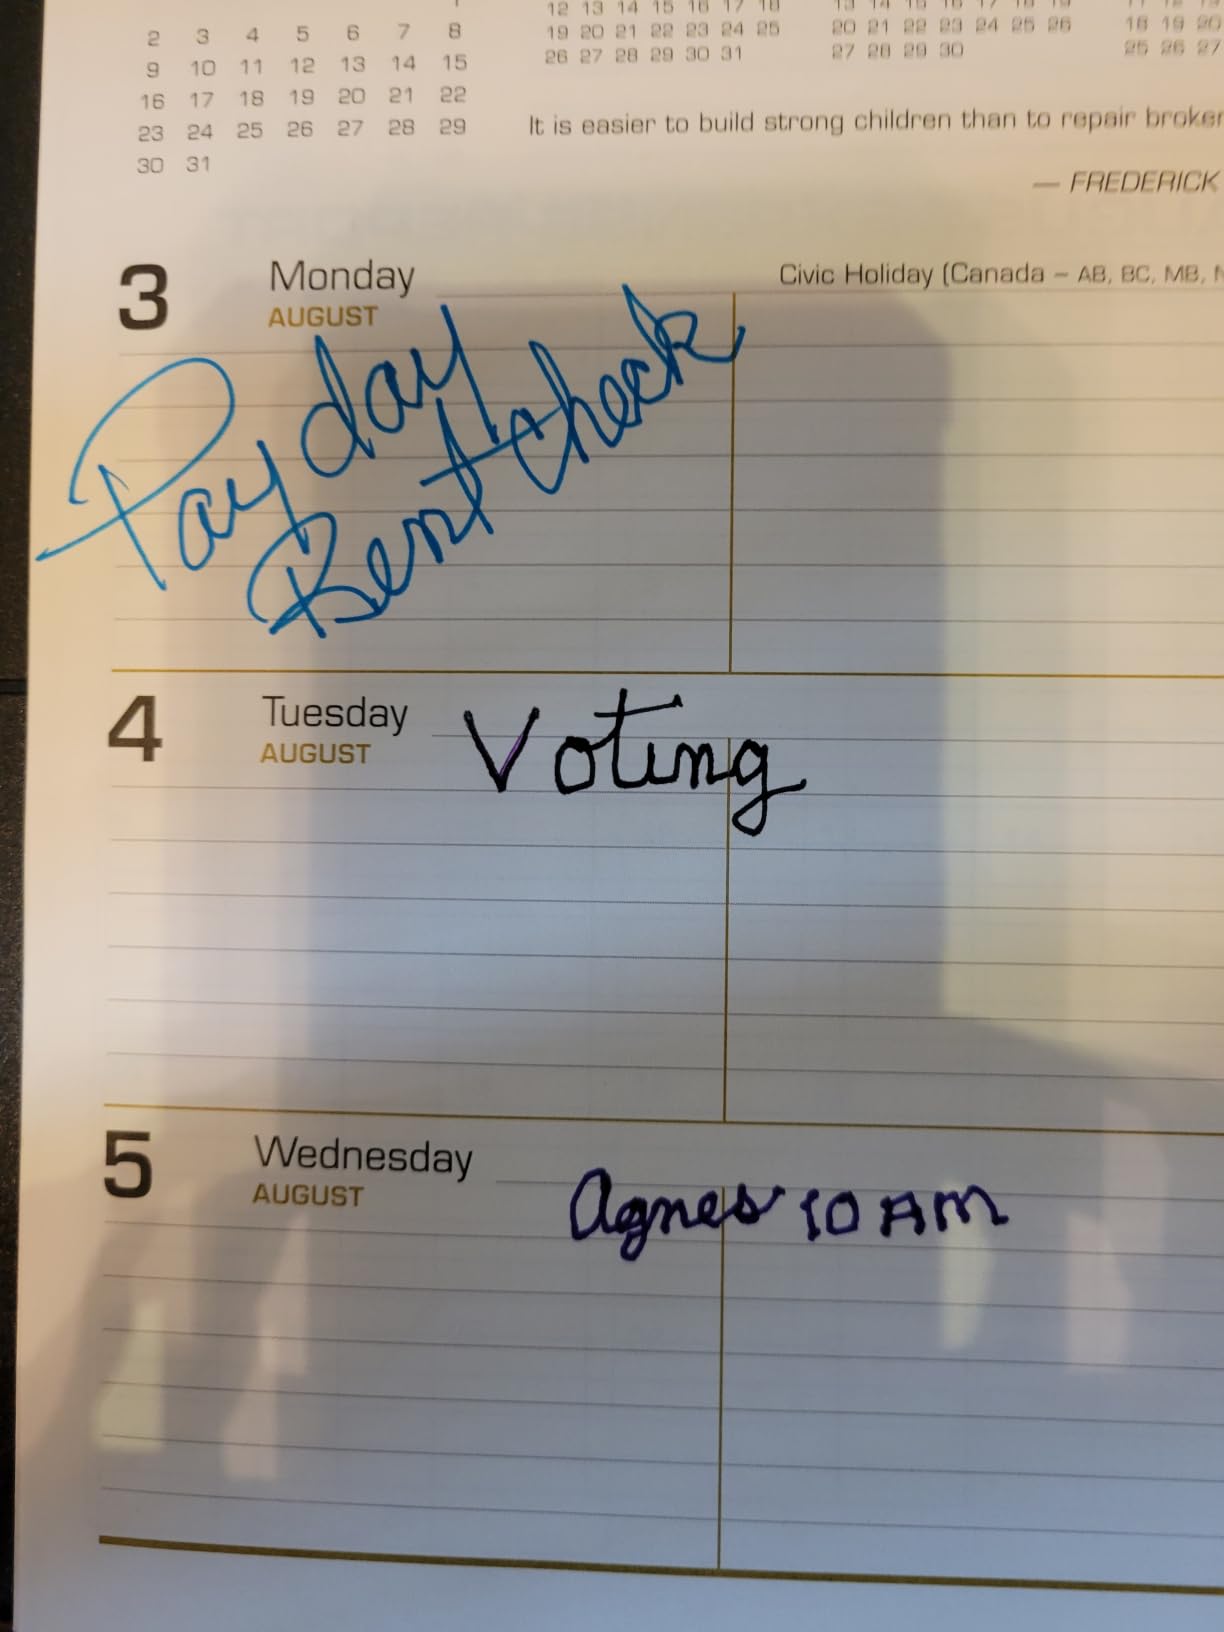 2 3 4 5 6 7 8
9 10 11 12 13 14 15
16 17 18 19 20 21 22
23 24 25 26 27 28 29
30 31
12 13 14 15 16 17 18
19 20 21 22 23 24 25
26 27 28 29 30 31
20 21 22 23 24 25 26
27 28 29 30
18 19 20
25 26 27
It is easier to build strong children than to repair broken
— FREDERICK
3 Monday
AUGUST
Civic Holiday (Canada – AB, BC, MB,
Pay day
Rent check
4 Tuesday
AUGUST
Voting
5 Wednesday
AUGUST
Agnes 10 AM